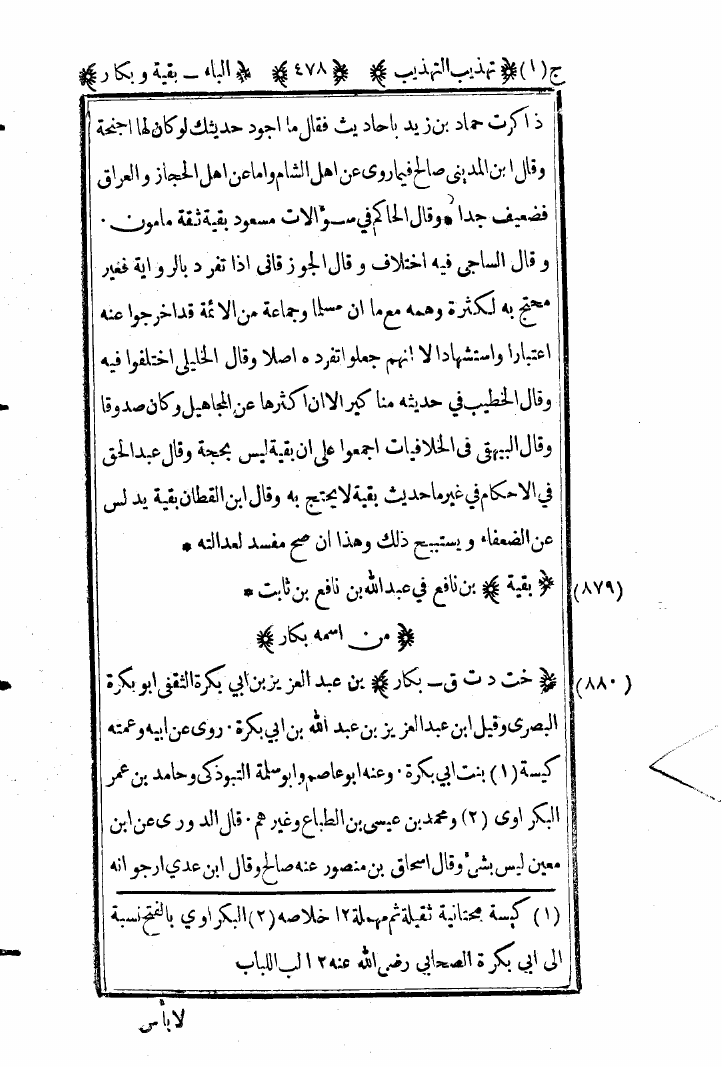 ج (١) ﴿ تهذيب التهذيب ﴾ ﴿ ٤٧٨ ﴾ ﴿ الباء ـ بقية و بكار ﴾
ذاكرت حماد بن زيد باحاديث فقال ما اجود حديثك لو كان لها اجنحة
وقال ابن المديني صالح فيما روى عن اهل الشام واما عن اهل الحجاز والعراق
فضعيف جدا * وقال الحاكم في سؤالات مسعود بقية ثقة مامون ·
وقال الساجى فيه اختلاف وقال الجوزقانى اذا تفرد بالرواية فغير
محتج به لكثرة وهمه مع ما ان مسلما وجماعة من الائمة قد اخرجوا عنه
اعتبارا واستشهادا لا انهم جعلوا تفرده اصلا وقال الخليلى اختلفوا فيه
وقال الخطيب في حديثه مناكير الا ان اكثرها عن المجاهيل وكان صدوقا
وقال البيهقى فى الخلافيات اجمعوا على ان بقية ليس بحجة وقال عبد الحق
في الاحكام في غير ما حديث بقية لا يحتج به وقال ابن القطان بقية يدلس
عن الضعفاء و يستبيح ذلك وهذا ان صح مفسد لعدالته *
(٨٧٩) ﴿ بقية ﴾ بن نافع في عبد الله بن نافع بن ثابت *
﴿ من اسمه بكار ﴾
(٨٨٠) ﴿ خت د ت ق ـ بكار ﴾ بن عبد العزيز بن ابي بكرة الثقفى ابو بكرة
البصرى وقيل ابن عبد العزيز بن عبد الله بن ابي بكرة · روى عن ابيه وعمته
كيسة (١) بنت ابي بكرة · وعنه ابو عاصم وابو سلمة التبوذكى وحامد بن عمر
البكراوى (٢) ومحمد بن عيسى بن الطباع وغيرهم · قال الدورى عن ابن
معين ليس بشئ وقال اسحاق بن منصور عنه صالح وقال ابن عدي ارجو انه
(١) كيسة بتحتانية ثقيلة ثم مهملة ١٢ خلاصه (٢) البكراوي بالفتح نسبة
الى ابي بكرة الصحابي رضى الله عنه ١٢ لب اللباب
لا بأس